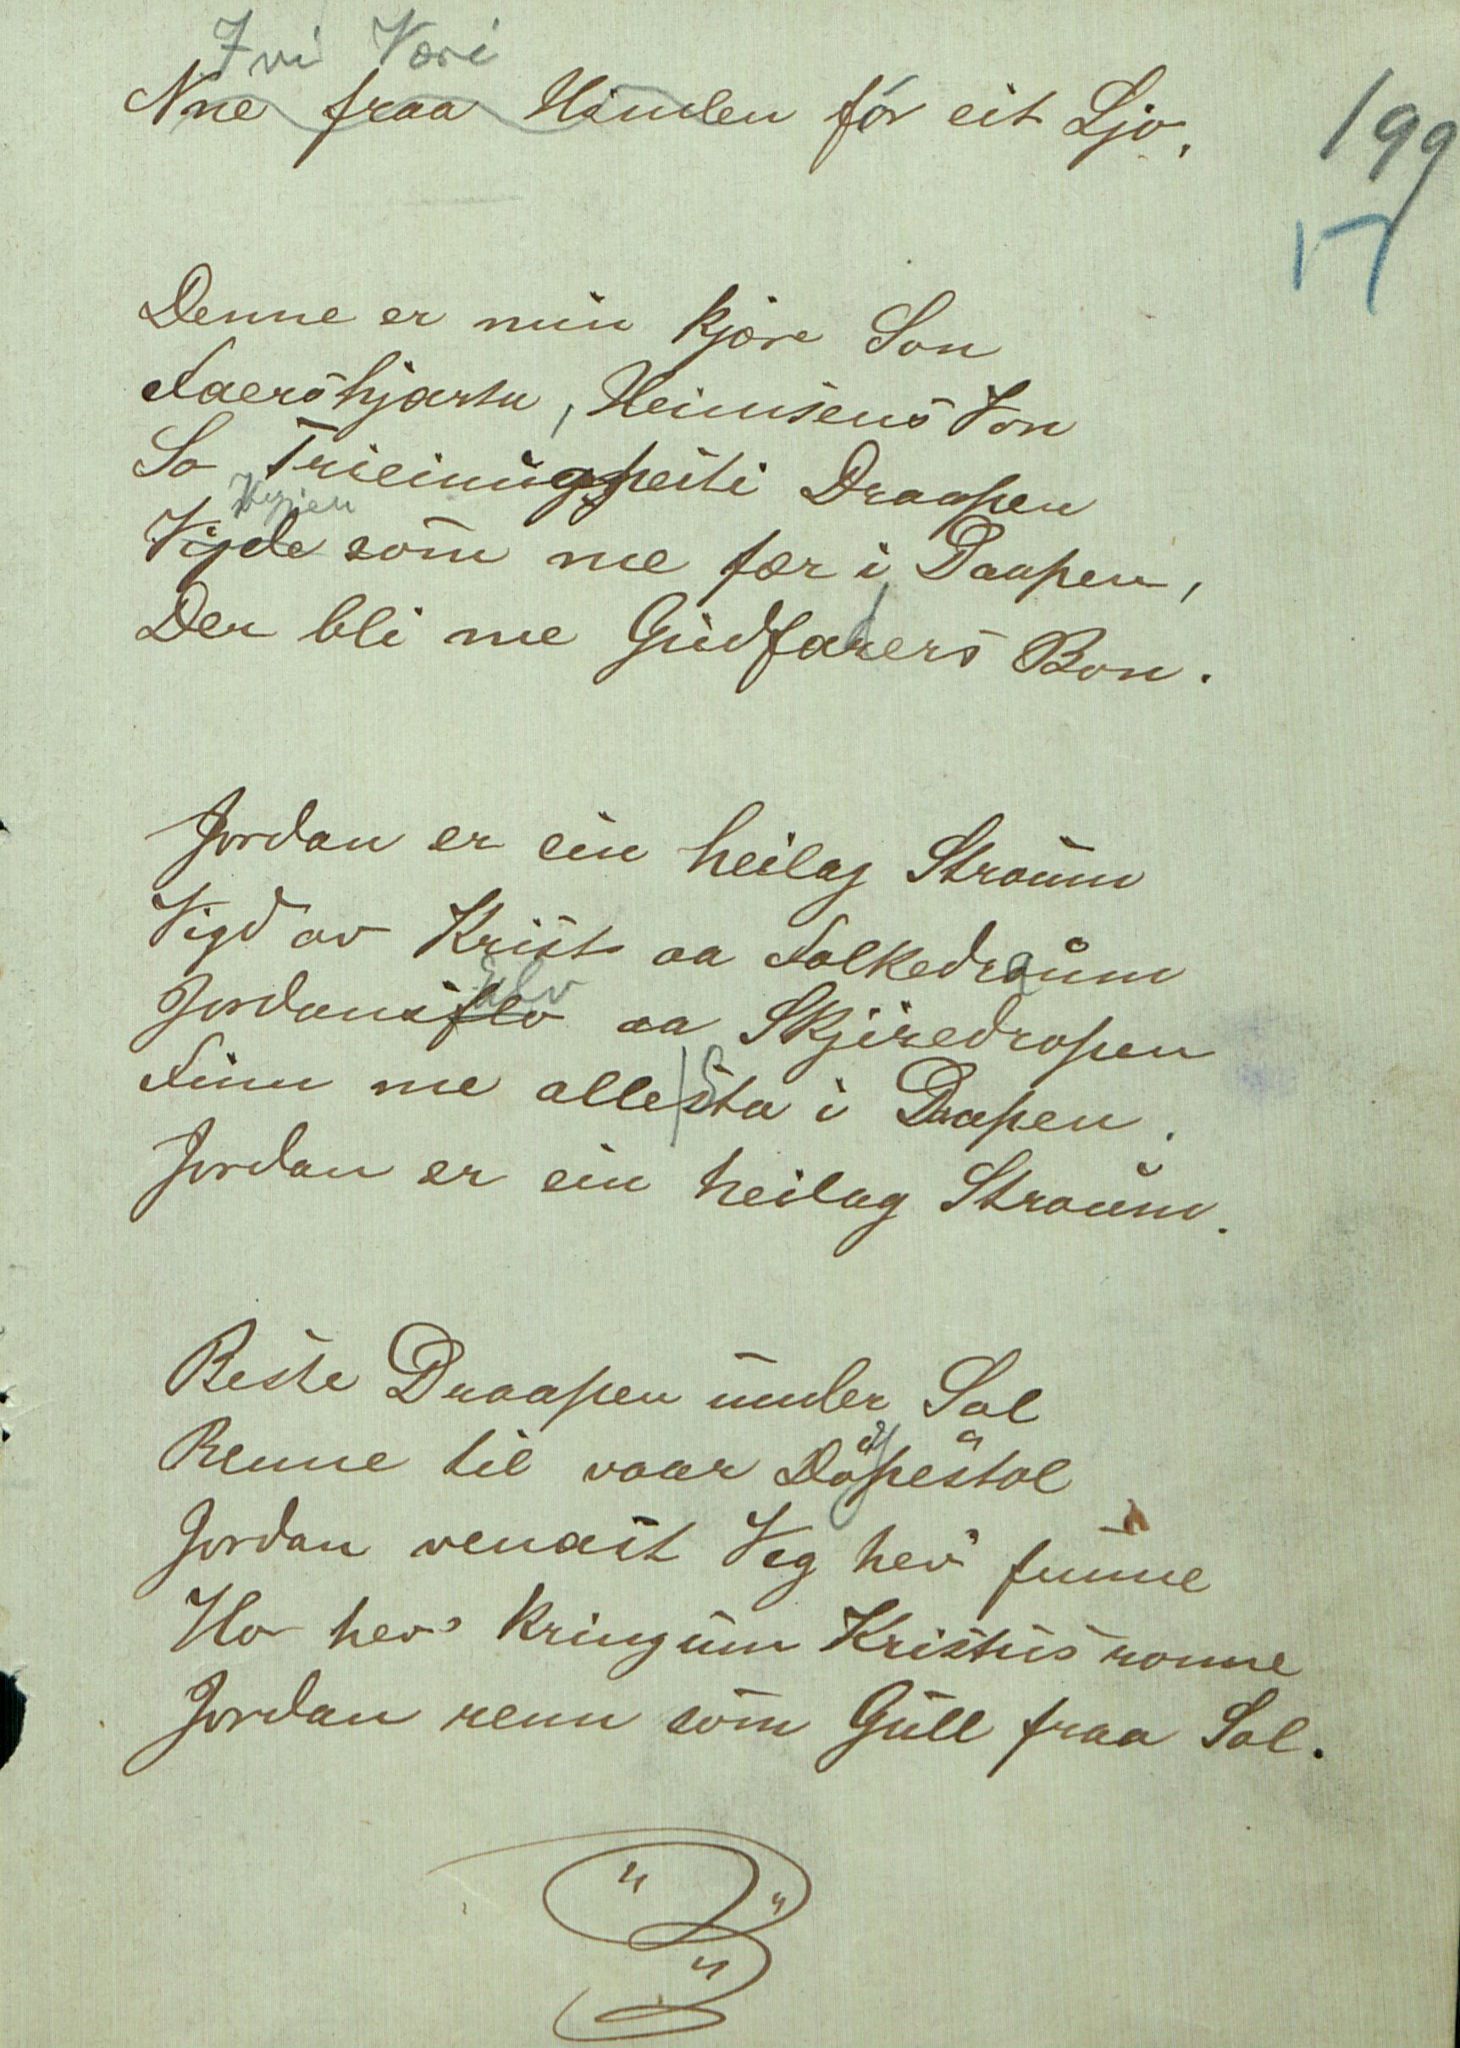 Ivi Væri
Nne fraa Himlen fór eit Ljo,
199
17
Denne er min kjære Son
Faershjarta, Heimsens Von
So Trieinigheiti Draapen
Hyjen
Vigde som me fær i Daapen,
Der bli me Gudfaders Bon.
Jordan er ein heilag Straum
Vigd av Krist aa Folkedraum
Jordansflo aa Skjiredropen
Finn me alle sta i Daapen.
Jordan er ein heilag Straum.
Beste Draapen under Sol
Renne til vaar Döpestol
Jordan venast Veg hev' funne
Ho hev' kringum Kristus ronne
Jordan renn som Gull fraa Sol.